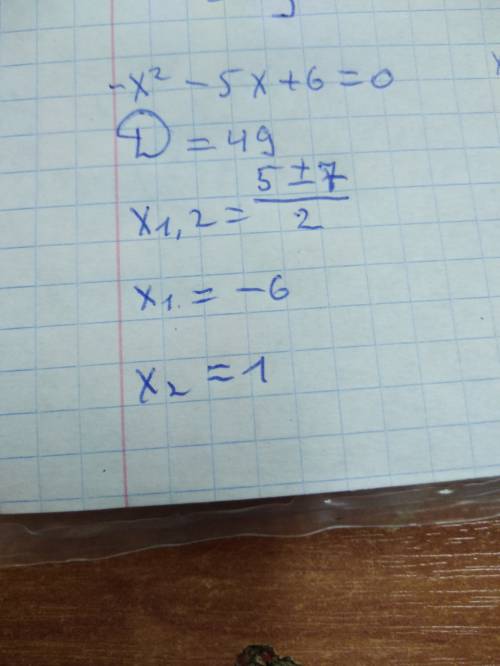 -x² - 5x + 6 = 0
D = 49
x1,2 = (5 ± 7)/2
x1 = -6
x2 = 1